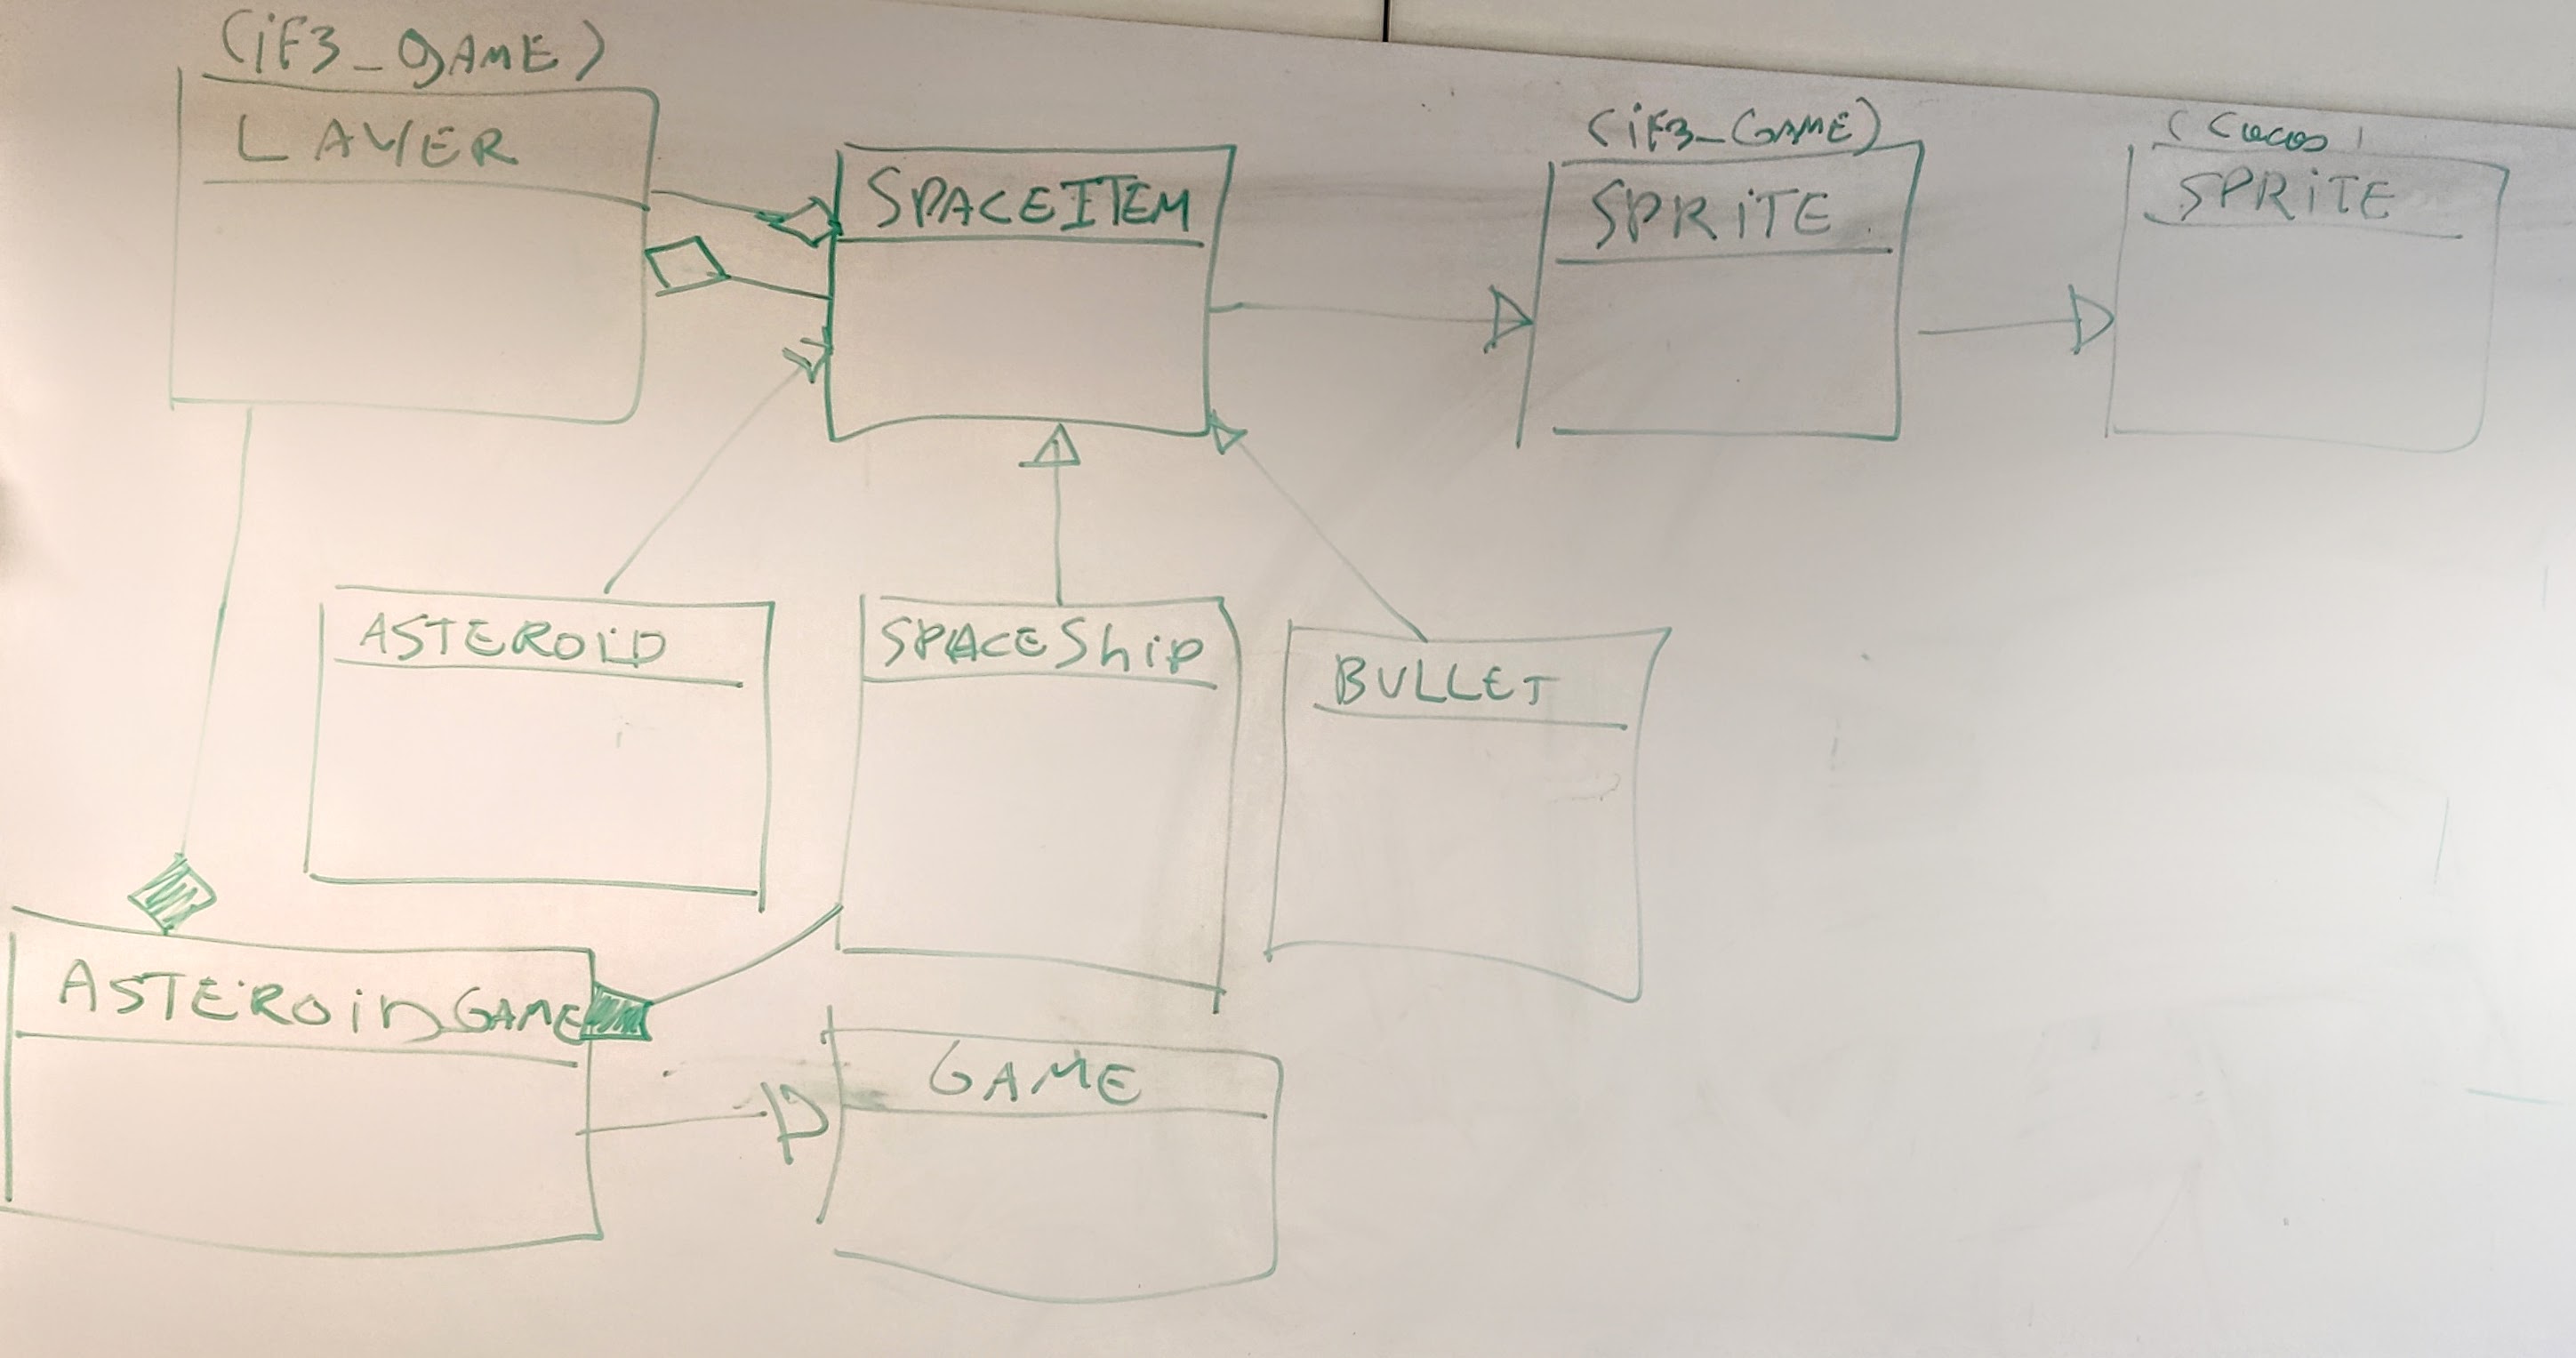 (iF3_gAME)
LAYER
SPACEITEM
(iF3_GAME)
SPRiTE
(Cocos)
SPRiTE
ASTEROiD
SPACEShip
BULLET
ASTEROiDGAME
GAME